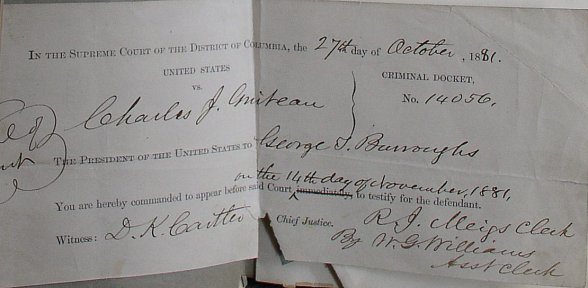 IN THE SUPREME COURT OF THE DISTRICT OF COLUMBIA, the 27th day of October, 1881.
UNITED STATES
vs.
Charles J. Guiteau
CRIMINAL DOCKET,
No. 14056,
THE PRESIDENT OF THE UNITED STATES TO George S. Burroughs
on the 14th day of November, 1881,
You are hereby commanded to appear before said Court immediately, to testify for the defendant.
Witness: D. K. Cartter Chief Justice.
R. J. Meigs Clerk
By W. G. Williams
Asst Clerk